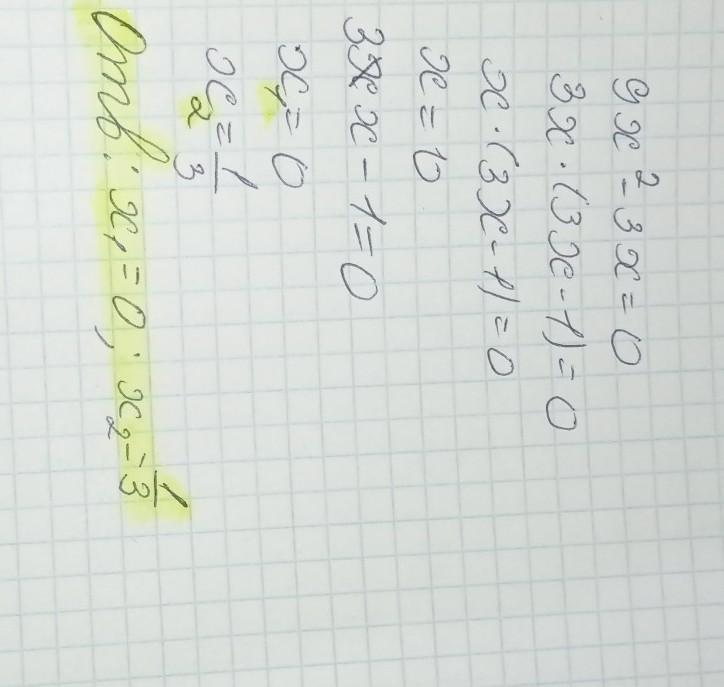 9x² - 3x = 0
3x · (3x - 1) = 0
x · (3x - 1) = 0
x = 0
3x - 1 = 0
x₁ = 0
x₂ = 1/3
Отв: x₁ = 0; x₂ = 1/3